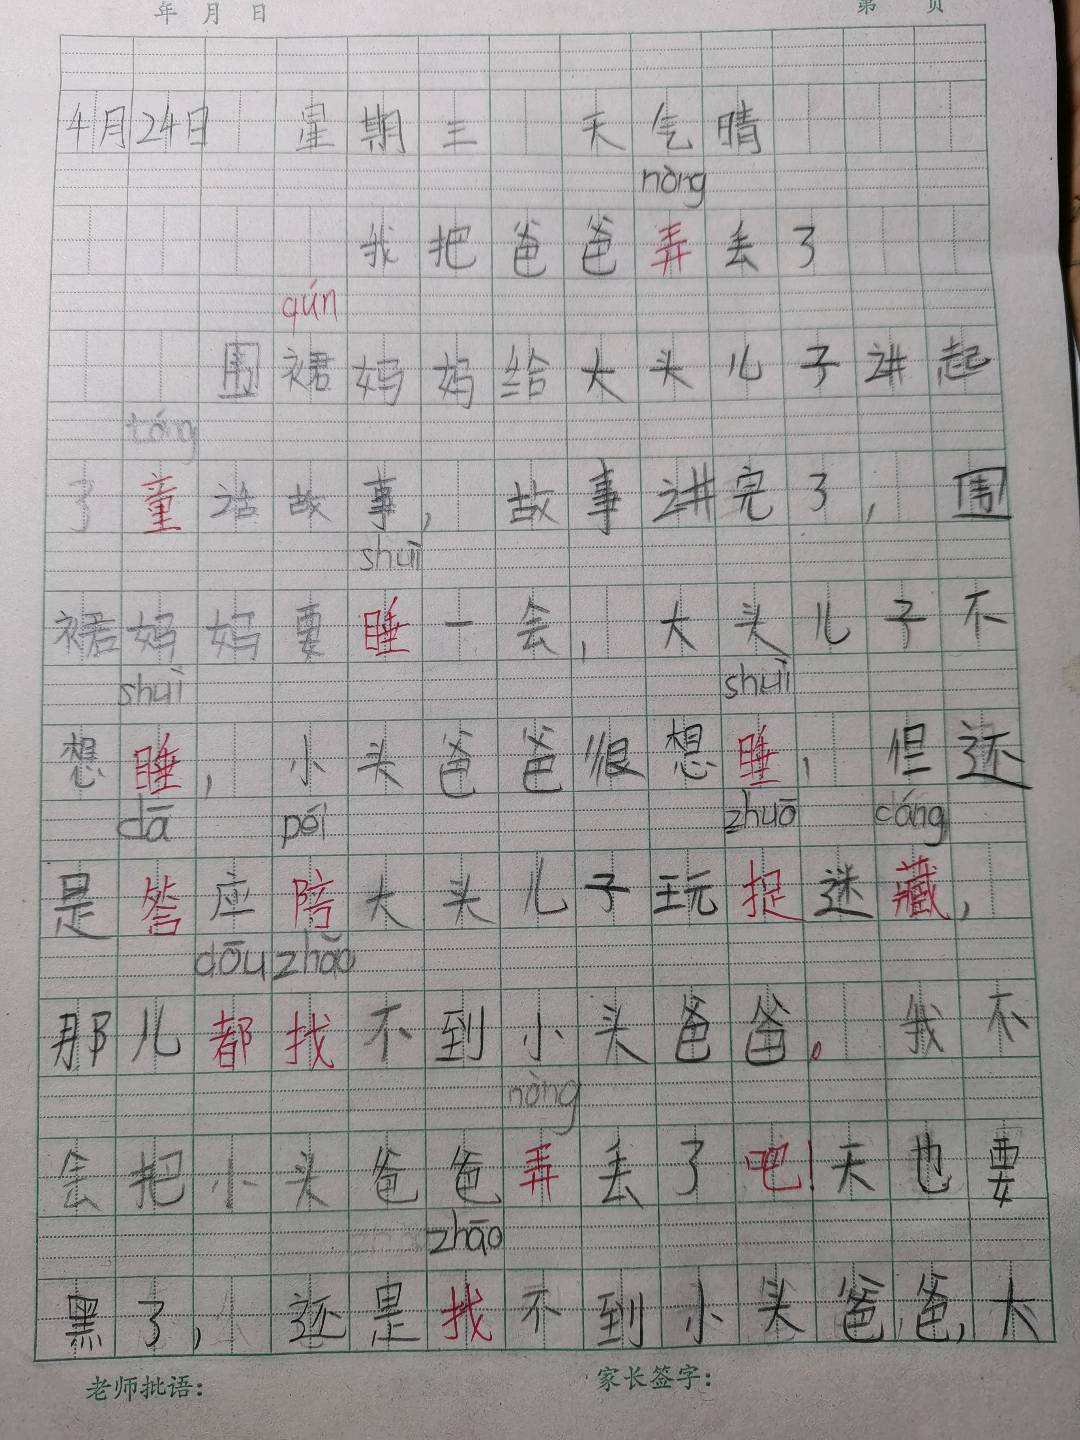 年 月 日 第 页
4月24日 星期三 天气晴
nòng
我把爸爸弄丢了
qún
围裙妈妈给大头儿子讲起
tóng
了童话故事，故事讲完了，围
shuì
裙妈妈要睡一会，大头儿子不
shuì shuì
想睡，小头爸爸很想睡，但还
dā péi zhuō cáng
是答应陪大头儿子玩捉迷藏，
dōu zhǎo
那儿都找不到小头爸爸。我不
nòng
会把小头爸爸弄丢了吧！天也要
zhāo
黑了，还是找不到小头爸爸，大
老师批语： 家长签字：